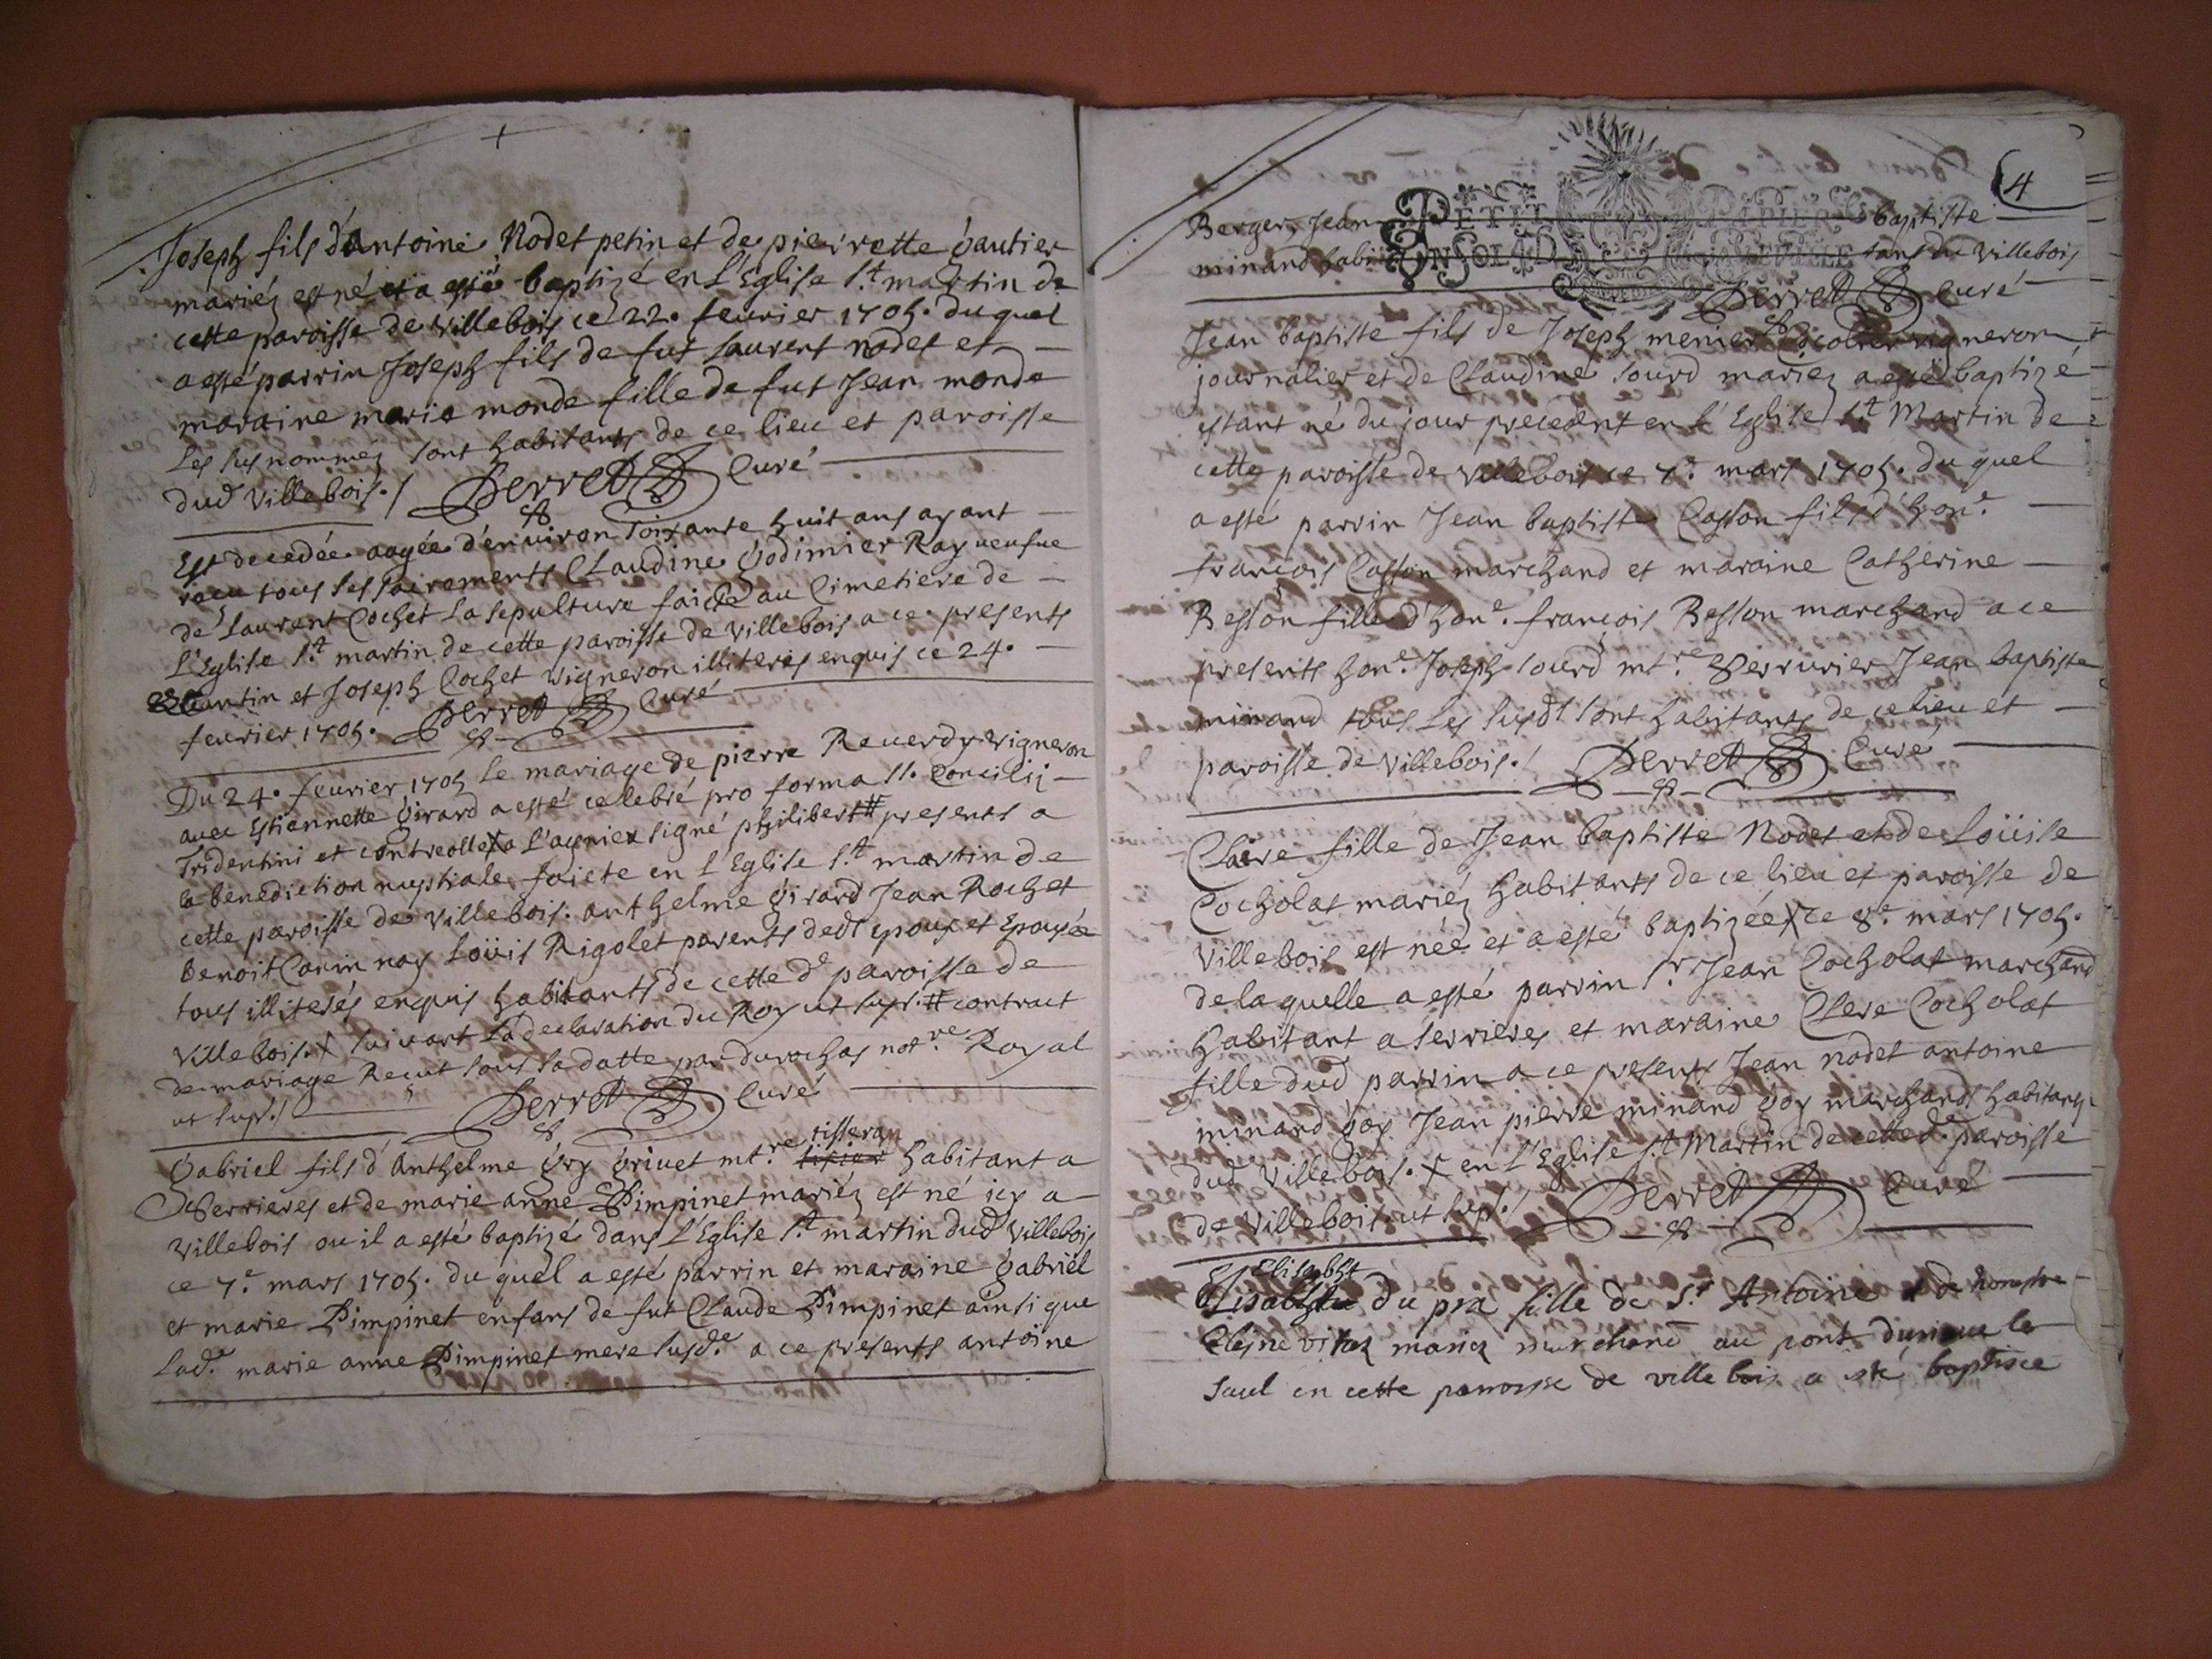 Joseph fils d'Antoine Nodet petin et de pierrette Gautier
mariéz est né et a esté baptizé en L'Eglise St martin de
cette paroisse de villebois ce 22. feurier 1705. du quel
a esté parrin Joseph fils de fut Laurent nodet et
maraine marie monde fille de fut Jean monde
Les susnomméz sont habitants de ce lieu et paroisse
dud villebois./ Perret Curé
Est decedée aagée d'enuiron soixante huit ans ayant
recu tous les sacrements Claudine Godimier Ray veufue
de Laurent Cochet La sepulture faicte au Cimetiere de
L'Eglise St martin de cette paroisse de villebois a ce presents
et Joseph Cochet vigneron illiterés enquis ce 24.
feurier 1705. Perret Curé
Du 24. feurier 1705 Le mariage de pierre Reuerdy vigneron
auec Estiennette Girard a esté celebré pro forma St. Concilij
Tridentini et controolle X a L'agnieu signé philibert # presents a
la benediction nuptiale faicte en L'Eglise St martin de
cette paroisse de villebois. anthelme Girard Jean Rochet
Benoit Cauin nay Loüis Rigolet parents desdt epoux et Epousée
tous illiterés enquis habitants de cette de paroisse de
Villebois. X suiuant La declaration du Roy ut supr. # contract
de mariage Recut sous sa datte par durochas notre Royal
ut supr./ Perret Curé
tisseran
Gabriel fils d'Anthelme Gry Griuet mtre habitant a
Serrieres et de marie anne Pimpinet mariéz est né icy a
villebois ou il a esté baptizé dans L'Eglise St martin dud Villebois
ce 7e mars 1705. du quel a esté parrin et maraine Gabriel
et marie Pimpinet enfans de fut Claude Pimpinet ainsi que
Lade marie anne Pimpinet mere susde. a ce presents antoine
4
PETIT PAPIER
UN SOL LA FEUILLE
Berger, Jean baptiste
minard habitans du Villebois
Perret Curé
Jean baptiste fils de Joseph menier vigneron
journalier et de Claudine Sourd mariez a esté baptizé
estant né du jour precedent en L'Eglise St Martin de
cette paroisse de villebois ce 7e mars 1705. du quel
a esté parrin Jean baptiste Casson fils d'hone.
françois Casson marchand et maraine Catherine
Besson fille d'hone. françois Besson marchand a ce
presents hone. Joseph Sourd mtre Serrurier Jean baptiste
minard tous Les susdt sont habitants de ce lieu et
paroisse de villebois./ Perret Curé
Claire fille de Jean baptiste Nodet et de Loüise
Cocholat mariéz habitants de ce lieu et paroisse de
villebois est née et a esté baptizée X ce 8e mars 1705.
de la quelle a esté parrin Sr Jean Cocholat marchand
habitant a Serrieres et maraine Clere Cocholat
fille dud parrin a ce presents Jean nodet antoine
minard Goy Jean pierre minard Goy marchands habitants
dud Villebois. X en L'Eglise St Martin de cette de paroisse
de villebois ut supr./ Perret Curé
Elisabht
du pra fille de Sr Antoine et de honeste
mariez marchand au pont
saul en cette paroisse de ville bois a esté baptisee